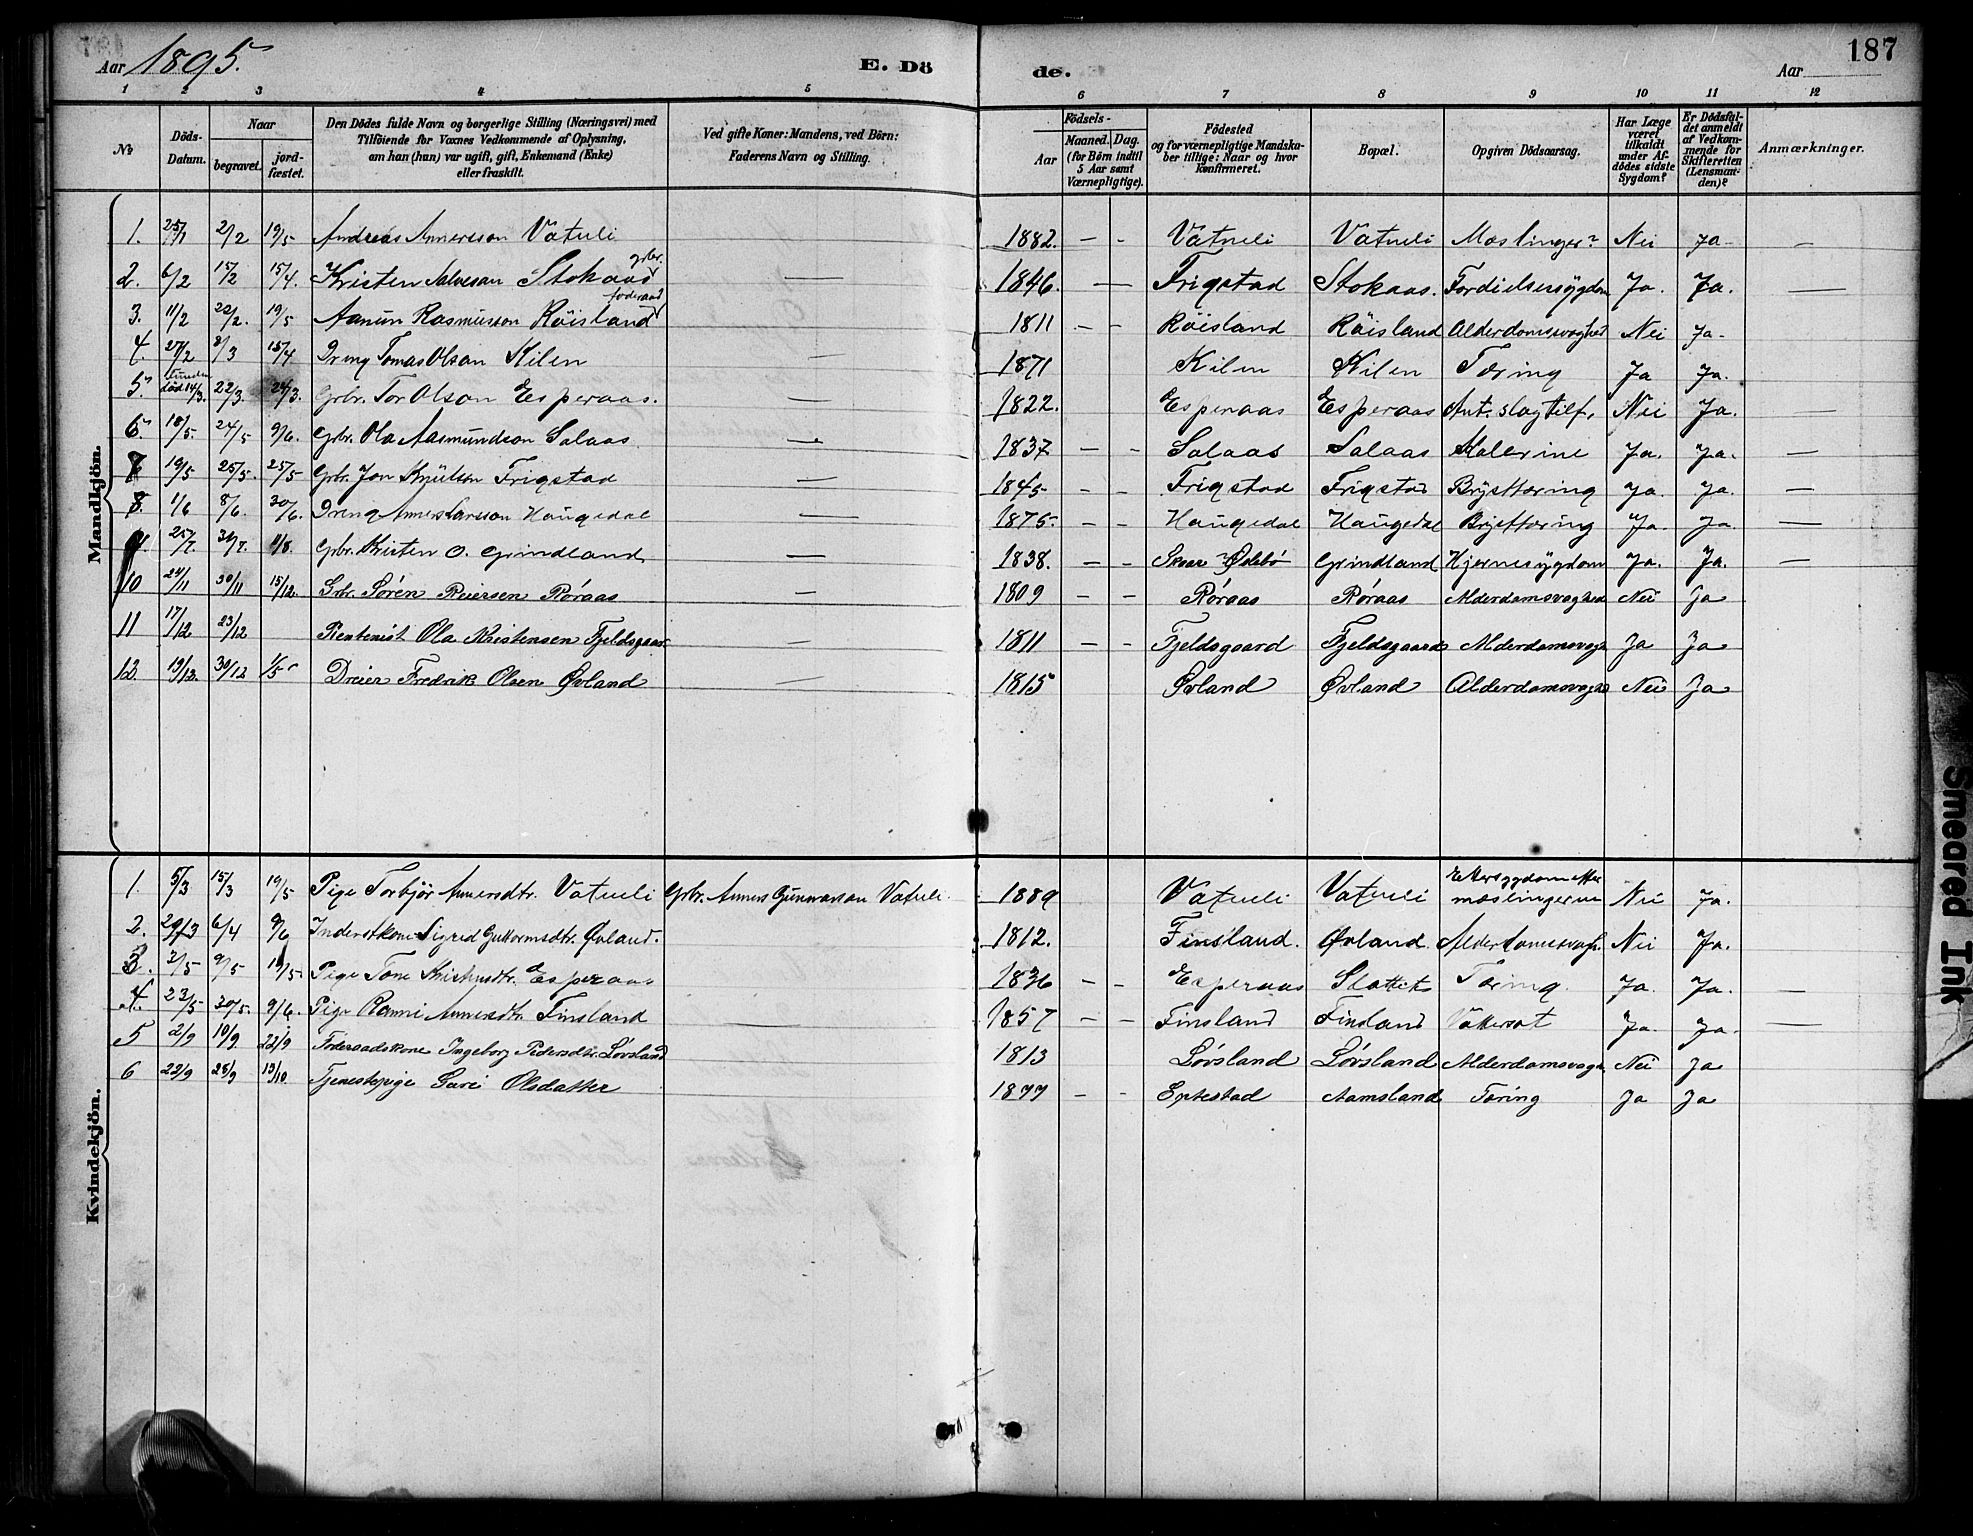 Aar 1895. E. Dö de. Aar 187
1 2 3 4 5 6 7 8 9 10 11 12
No Döds-Datum. Naar begravet. jordfæstet. Den Dödes fulde Navn og borgerlige Stilling (Næringsvei) med Tilföiende for Voxnes Vedkommende af Oplysning, om han (hun) var ugift, gift, Enkemand (Enke) eller fraskilt. Ved gifte Koner: Mandens, ved Börn: Faderens Navn og Stilling. Födsels- Aar Maaned. Dag. (for Börn indtil 5 Aar samt Værnepligtige). Födested og for værnepligtige Mandskaber tillige: Naar og hvor konfirmeret. Bopæl. Opgiven Dödsaarsag. Har Læge været tilkaldt under Afdödes sidste Sygdom? Er Dödsfaldet anmeldt af Vedkommende for Skifteretten (Lensmanden)? Anmærkninger.
Mandkjön.
1. 25/1 2/2 19/5 Andreas Annersson Vatneli 1882. — - Vatneli Vatneli Meslinger? Nei Ja - —
2. 6/2 15/2 15/4. Kristen Salvesan Stokaas grbr. — 1846. — Frigstad Stokaas. Fordøielsessygdom Ja. Ja. —
3. 11/2 22/2. 19/5 Aanun Rasmusson Røisland foderaad — 1811 — - Røisland Røisland Alderdomssvaghed Nei Ja -
4. 27/2 8/3 15/4 Dreng Tomas Olsan Kilen — 1871 Kilen Kilen Tæring Ja Ja.
5. funden død 14/3. 22/3. 24/3. Grbr. Tor Olson Esperaas. — 1822. Esperaas Esperaas Ant. slagtilf. Nei Ja. —
6. 18/5. 24/5 9/6. Grbr. Ola Aasmundson Salaas — 1837 — - Salaas Salaas Kolerine Ja. Ja. —
7 19/5 25/5. 25/5 Grbr. Jon Knutson Frigstad — 1845 — - Frigstad Frigstad Brysttæring Ja. Ja. —
8. 1/6 8/6. 30/6. Dreng Anners Larsson Haugedal — 1875. — - Haugedal Haugedal Brysttæring Ja. Ja. —
9. 25/7. 31/7. 11/8. Grbr. Kristen O. Grindland — 1838. — - Øslebø Grindland Hjernesygdom Ja. Ja. —
10 24/11 30/11 15/12. Grbr. Søren Reiersen Røraas — 1809 — - Røraas Røraas Alderdomsvaghed Nei Ja
11 17/12 23/12 Rentenist Ola Kristensen Fjeldsgaar. — 1811 — - Fjeldsgaard Fjeldsgaard Alderdomsvagh Ja Ja
12. 19/12. 30/12 1/5 Dreier Fredrik Olsen Øvland — 1815 Øvland Øvland Alderdomsvaghe Nei Ja
Kvindekjön.
1. 5/3 15/3 19/5 Pige Torbjør Annersdtr. Vatneli Grbr. Anners Gunnarson Vatneli. 1889 Vatneli Vatneli Ettersygdom etter meslingerne Nei Ja.
2. 29/3 6/4 9/6 Inderstkone Sigrid Guttormsdtr. Øvland. 1812. Finsland. Øvland. Alderdomssvagh. Nei Ja.
3. 2/5 9/5 19/5 Pige Tone Kristensdtr. Esperaas 1836 - - Esperaas Tæring. Ja. Ja. —
4. 23/5 30/5. 9/6. Pige Ranni Annersdtr. Finsland — 1857 — - Finsland Finsland Vattersot Ja. Ja. —
5 2/9 10/9 22/9 Foderaadskone Ingeborg Pedersdtr. Løvsland 1813 Løvsland Løvsland Alderdomsvagh Nei Ja
6 22/9 28/9 13/10. Tjenestepige Guri Olsdatter 1877 - - Eptestad Aamsland Tæring Ja Ja
Smeared Ink